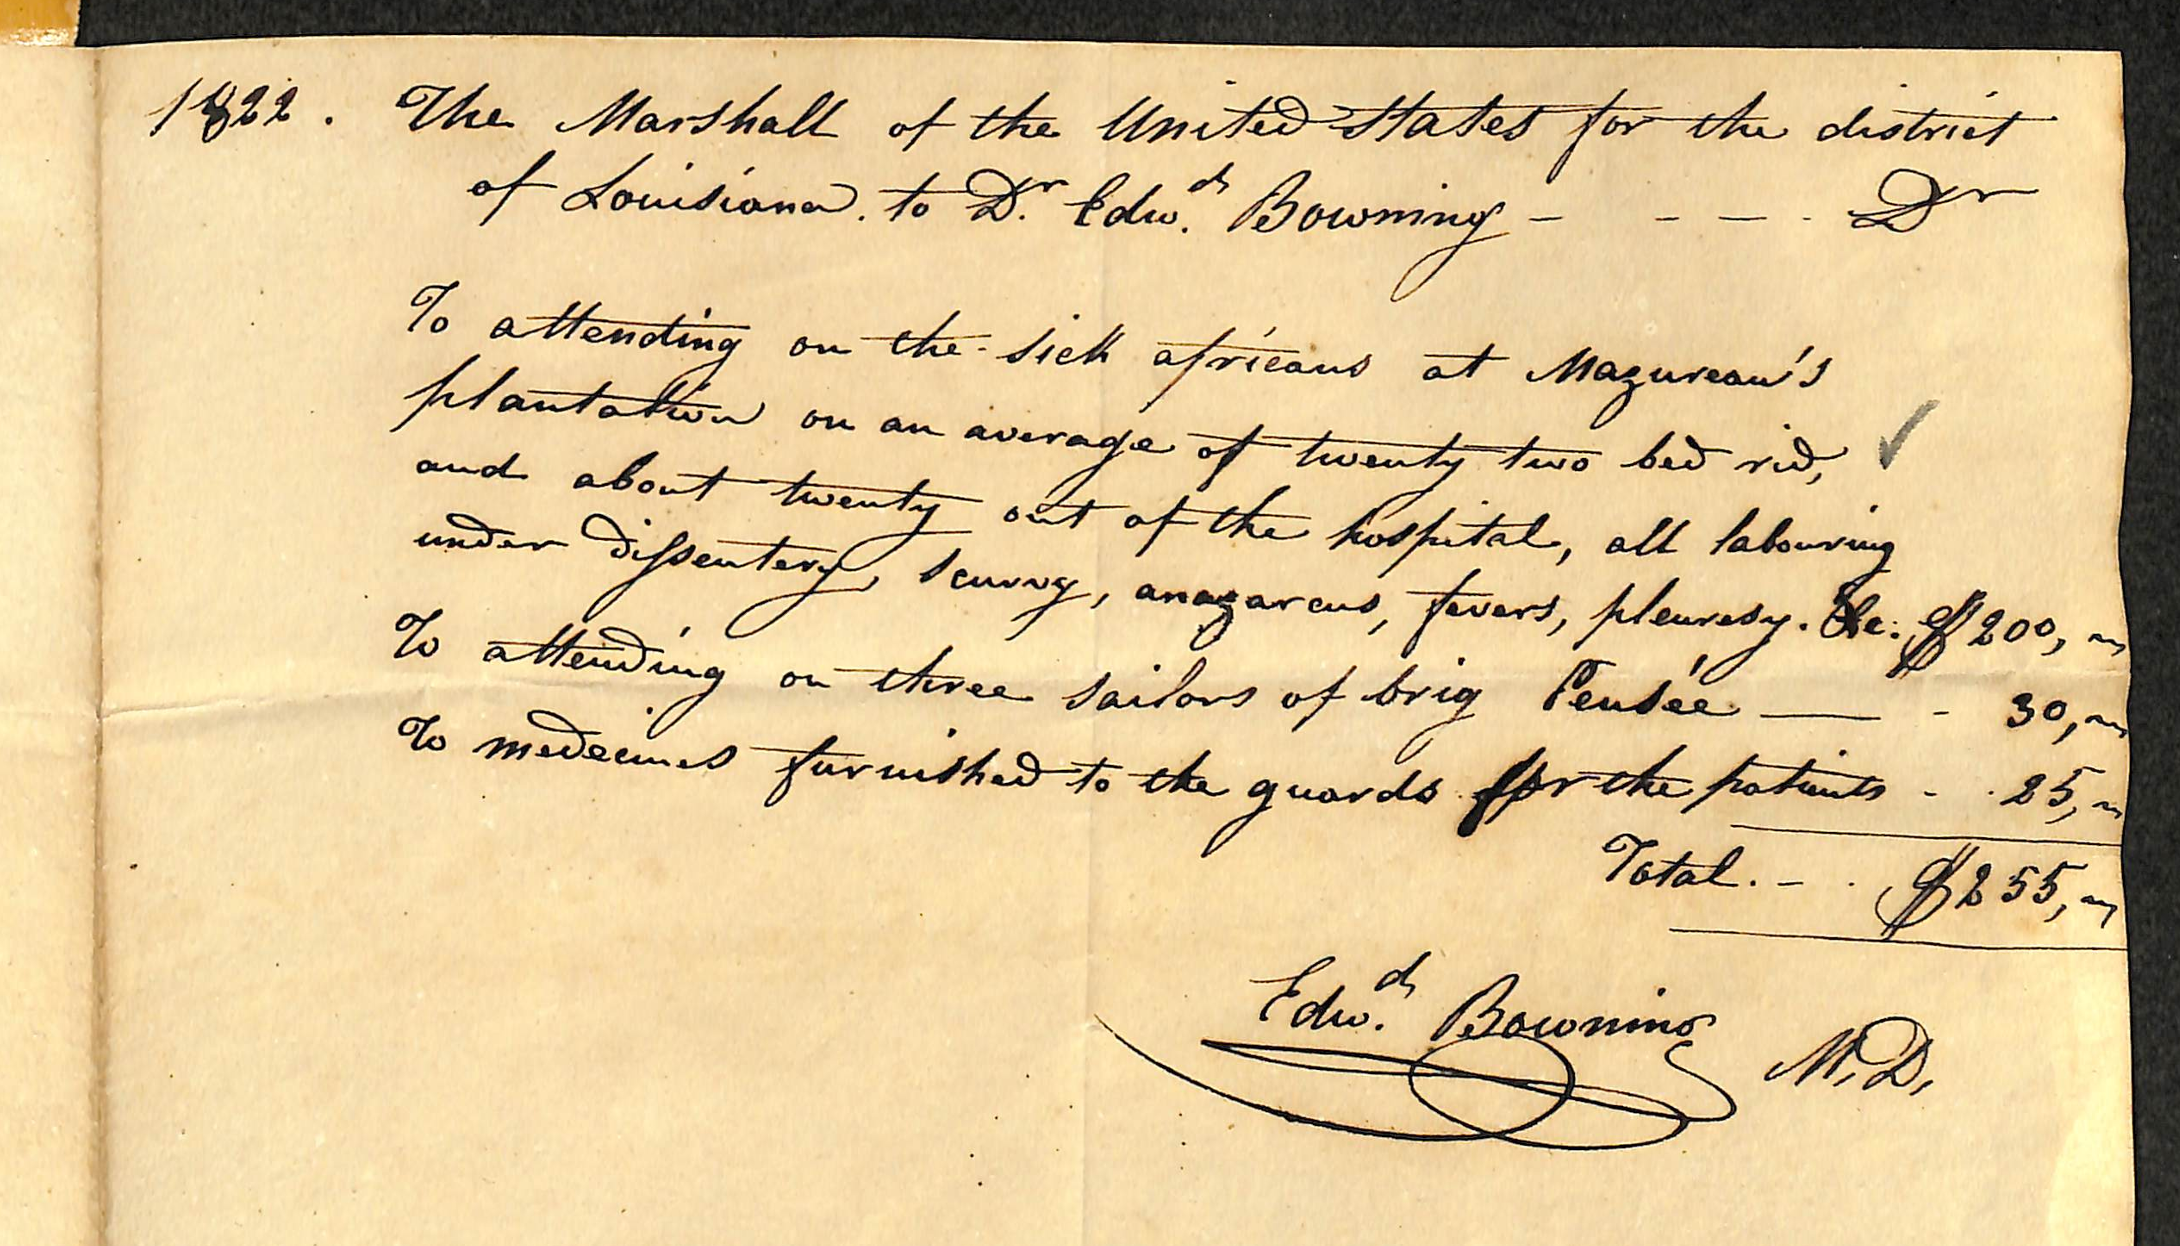 1822. The Marshall of the United States for the district
of Louisiana. to Dr. Edwd. Bowning - - - - Dr
To attending on the sick africans at Mazureau's
plantation on an average of twenty two bed rid,
and about twenty out of the hospital, all labouring
under dissentery, scurvy, anazarcus, fevers, pleuresy. &c. $200,
To attending on three sailors of brig Pensée — - 30,
To medecines furnished to the guards for the patients - . 25,
Total. - . $255,
Edwd. Bowning M.D.